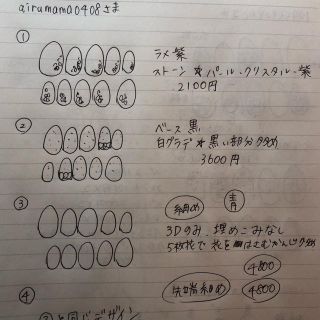 airumama0408さま
①
ラメ紫
ストーン☆パール・クリスタル・紫
2100円
②
ベース 黒
白グラデ☆黒い部分多め
3600円
③
細め
青
3Dのみ、埋めこみなし
5枚花で花をはさむかんじ多め
4800
先端細め
4800
④
と同じデザイン